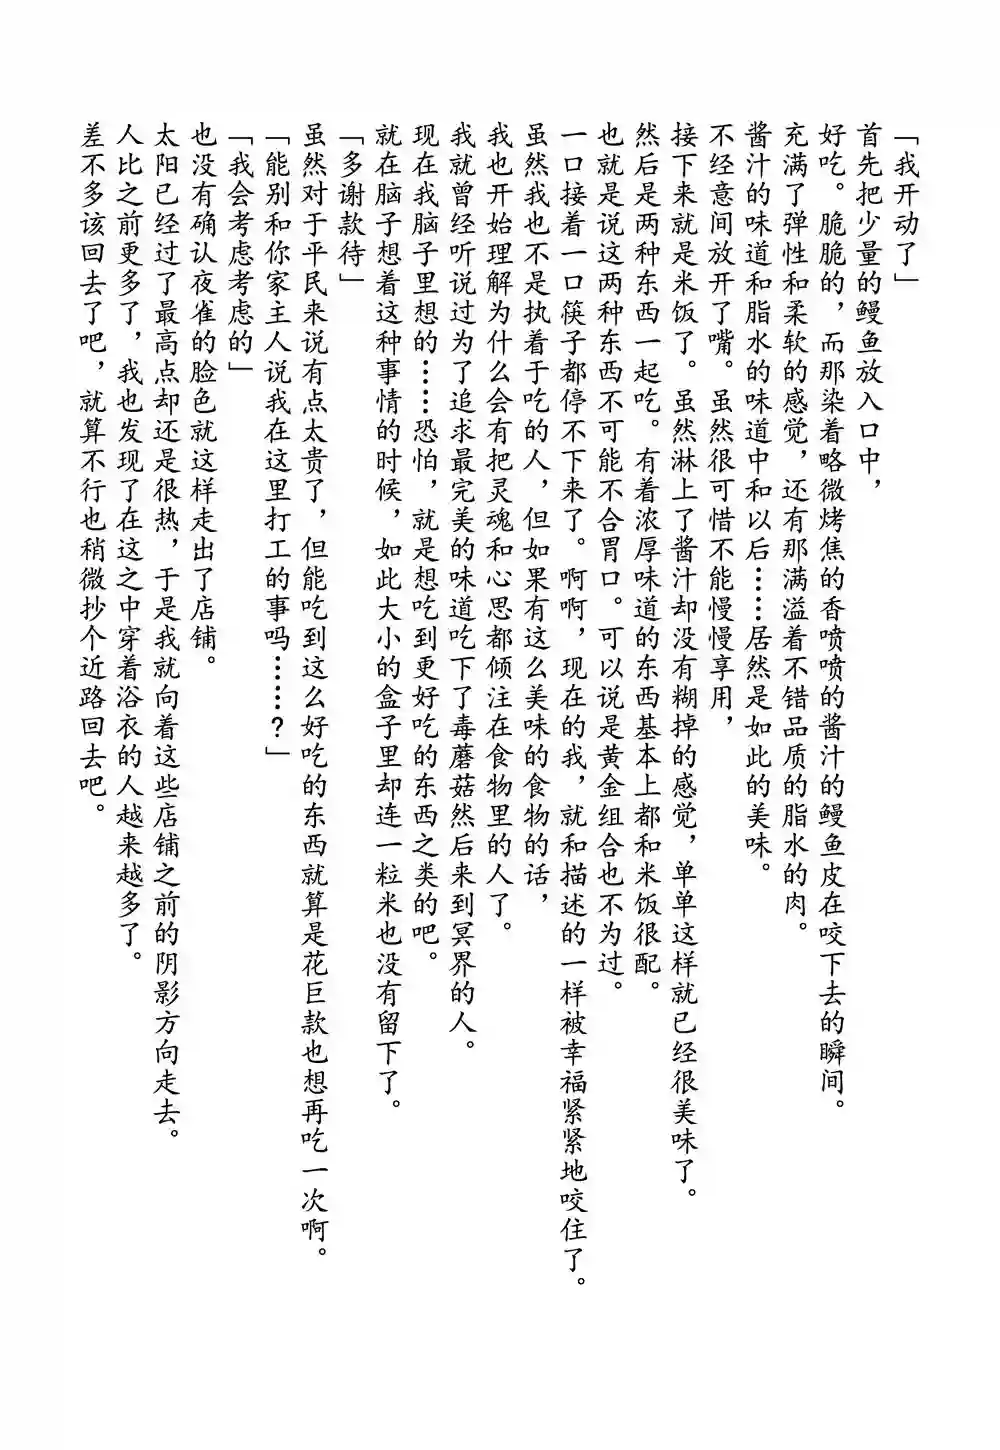 「我开动了」
首先把少量的鳗鱼放入口中，
好吃。脆脆的，而那染着略微烤焦的香喷喷的酱汁的鳗鱼皮在咬下去的瞬间。
充满了弹性和柔软的感觉，还有那满溢着不错品质的脂水的肉。
酱汁的味道和脂水的味道中和以后……居然是如此的美味。
不经意间放开了嘴。虽然很可惜不能慢慢享用，
接下来就是米饭了。虽然淋上了酱汁却没有糊掉的感觉，单单这样就已经很美味了。
然后是两种东西一起吃。有着浓厚味道的东西基本上都和米饭很配。
也就是说这两种东西不可能不合胃口。可以说是黄金组合也不为过。
一口接着一口筷子都停不下来了。啊啊，现在的我，就和描述的一样被幸福紧紧地咬住了。
虽然我也不是执着于吃的人，但如果有这么美味的食物的话，
我也开始理解为什么会有把灵魂和心思都倾注在食物里的人了。
我就曾经听说过为了追求最完美的味道吃下了毒蘑菇然后来到冥界的人。
现在我脑子里想的……恐怕，就是想吃到更好吃的东西之类的吧。
就在脑子想着这种事情的时候，如此大小的盒子里却连一粒米也没有留下了。
「多谢款待」
虽然对于平民来说有点太贵了，但能吃到这么好吃的东西就算是花巨款也想再吃一次啊。
「能别和你家主人说我在这里打工的事吗……？」
「我会考虑考虑的」
也没有确认夜雀的脸色就这样走出了店铺。
太阳已经过了最高点却还是很热，于是我就向着这些店铺之前的阴影方向走去。
人比之前更多了，我也发现了在这之中穿着浴衣的人越来越多了。
差不多该回去了吧，就算不行也稍微抄个近路回去吧。